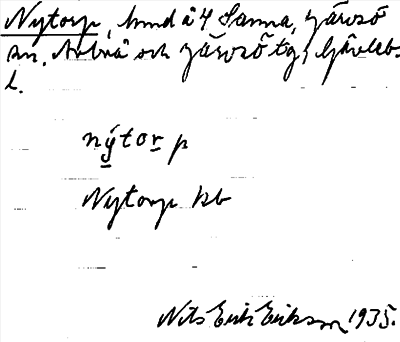 Nytorp, hmd å 4 Sanna, Järvsö
sn, Arbrå och Järvsö tg, Gävleb.
l.
nýtorp
Nytorp kb
Nils Erik Erikson 1935.